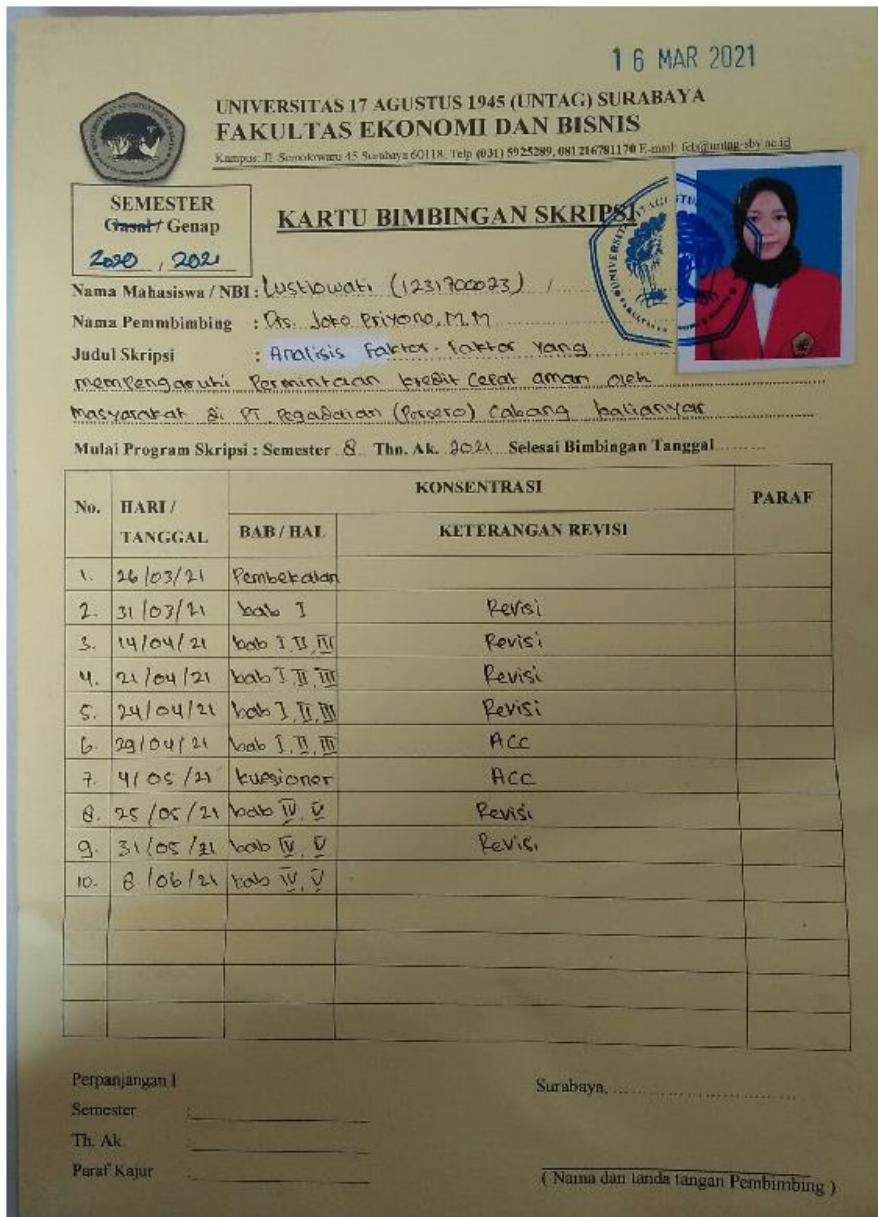 16 MAR 2021
UNIVERSITAS 17 AGUSTUS 1945 (UNTAG) SURABAYA
FAKULTAS EKONOMI DAN BISNIS
Kampus: Jl. Semolowaru 45 Surabaya 60118, Telp (031) 5925289, 081216781170 E-mail: feb@untag-sby.ac.id
SEMESTER
Gasal / Genap
2020 , 2021
KARTU BIMBINGAN SKRIPSI
Nama Mahasiswa / NBI : Lustiowati (1231700023) /
Nama Pemmbimbing : Drs. Joko Priyono, M.M
Judul Skripsi : Analisis Faktor-faktor yang
mempengaruhi Permintaan kredit Cepat aman oleh
masyarakat di PT. Pegadaian (Persero) Cabang balianyar
Mulai Program Skripsi : Semester 8 Thn. Ak. 2021 Selesai Bimbingan Tanggal
No. HARI / TANGGAL KONSENTRASI PARAF
BAB / HAL KETERANGAN REVISI
1. 26/03/21 Pembekalan
2. 31/03/21 bab I Revisi
3. 14/04/21 bab I, II, III Revisi
4. 21/04/21 bab I, II, III Revisi
5. 24/04/21 bab I, II, III Revisi
6. 29/04/21 bab I, II, III ACC
7. 4/05/21 kuesioner ACC
8. 25/05/21 bab IV, V Revisi
9. 31/05/21 bab IV, V Revisi
10. 8/06/21 bab IV, V
Perpanjangan I
Surabaya,
Semester :
Th. Ak. :
Paraf Kajur :
( Nama dan tanda tangan Pembimbing )